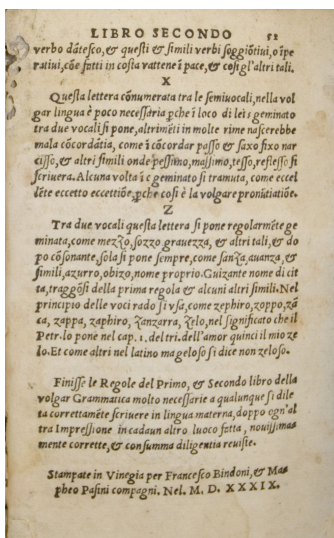 LIBRO SECONDO 52
verbo dātesco, & questi & simili verbi soggiōtiui, o īpe
ratiui, cōe fatti in costa vattene ī pace, & cosi gl'altri tali.
X
Questa lettera cōnumerata tra le semiuocali, nella vol
gar lingua è poco necessaria ꝑche ī loco di lei s geminato
tra due vocali si pone, altrimēti in molte rime nascerebbe
mala cōcordātia, come ī cōcordar passo & saxo fixo nar
cisso, & altri simili onde pessimo, massimo, tesso, reflesso si
scriuera. Alcuna volta ī c geminato si tramuta, come eccel
lēte eccetto eccettiōe, ꝑche cosi è la volgare pronūtiatiōe.
Z
Tra due vocali questa lettera si pone regolarmēte ge
minata, come mezzo, sozzo, grauezza, & altri tali, & do
po cōsonante, sola si pone sempre, come sanza, auanza, &
simili, azurro, obizo, nome proprio. Guizante nome di cit
ta, traggōsi della prima regola & alcuni altri simili. Nel
principio delle voci rado si vsa, come zephiro, zoppo, zā
ca, zappa, zaphiro, zanzarra, zelo, nel significato che il
Petr. lo pone nel cap. 1. del tri. dell'amor quinci il mio ze
lo. Et come altri nel latino ma geloso si dice non zeloso.
Finisse le Regole del Primo, & Secondo libro della
volgar Grammatica molto necessarie a qualunque si dile
ta correttamēte scriuere in lingua materna, doppo ogn'al
tra Impressione in cadaun altro luoco fatta, nouissima
mente corrette, & con summa diligentia reuiste.
Stampate in Vinegia per Francesco Bindoni, & Ma
pheo Pasini compagni. Nel. M. D. XXXIX.